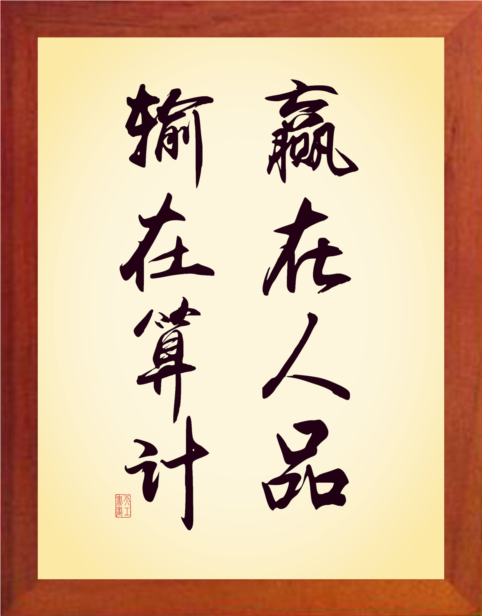 赢在人品
输在算计